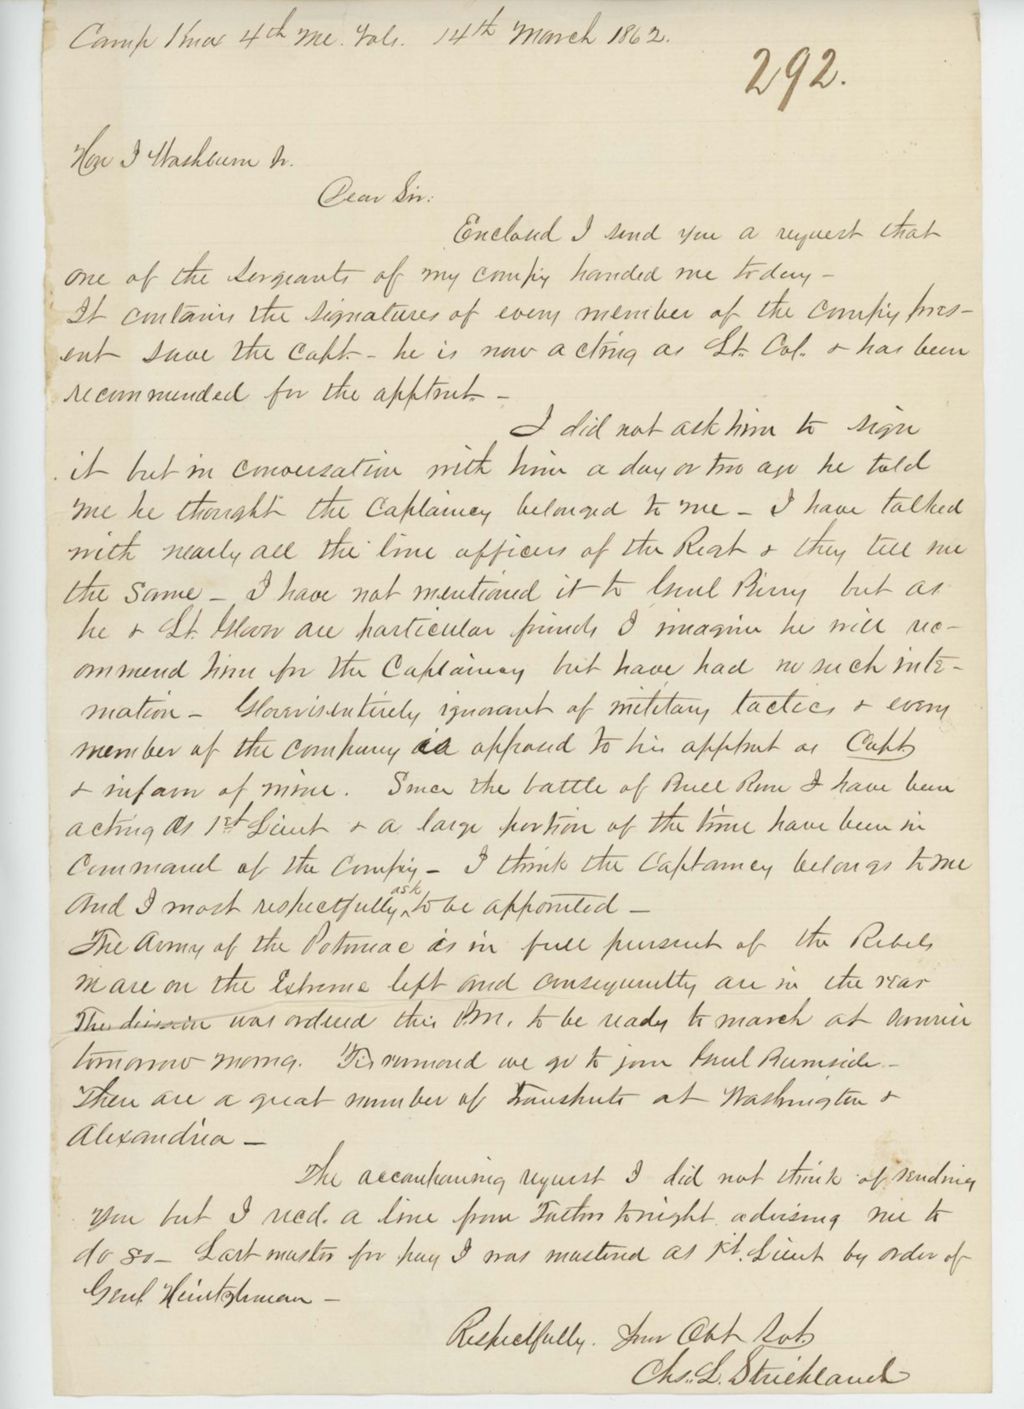 Camp Knox 4th Me. Vols. 14th March 1862.
292.
Hon I Washburn Jr.
Dear Sir:
Enclosed I send you a request that
one of the Sergeants of my compy handed me today -
It contains the signatures of every member of the compy pres-
ent save the Capt - he is now acting as Lt. Col. & has been
recommended for the apptmt. -
I did not ask him to sign
it but in conversation with him a day or two ago he told
me he thought the Captaincy belonged to me - I have talked
with nearly all the line officers of the Regt & they tell me
the same - I have not mentioned it to Genl Berry but as
he & Lt. Glover are particular friends I imagine he will rec-
ommend him for the Captaincy but have had no such inti-
mation - Glover is entirely ignorant of military tactics & every
member of the company is opposed to his apptmt as Capt
& in favor of mine. Since the battle of Bull Run I have been
acting as 1st Lieut & a large portion of the time have been in
command of the compy - I think the Captaincy belongs to me
and I most respectfully ask to be appointed -
The Army of the Potomac is in full pursuit of the Rebels
We are on the extreme left and consequently are in the rear
The division was ordered this P.M. to be ready to march at sunrise
tomorrow morng. Tis rumored we go to join Genl Burnside. -
There are a great number of transports at Washington &
Alexandria -
The accompaning request I did not think of sending
you but I recd. a line from Father tonight advising me to
do so - Last muster for pay I was mustered as 1st. Lieut by order of
Genl Heintzleman -
Respectfully. Your Obt Svt.
Chs. L. Strickland